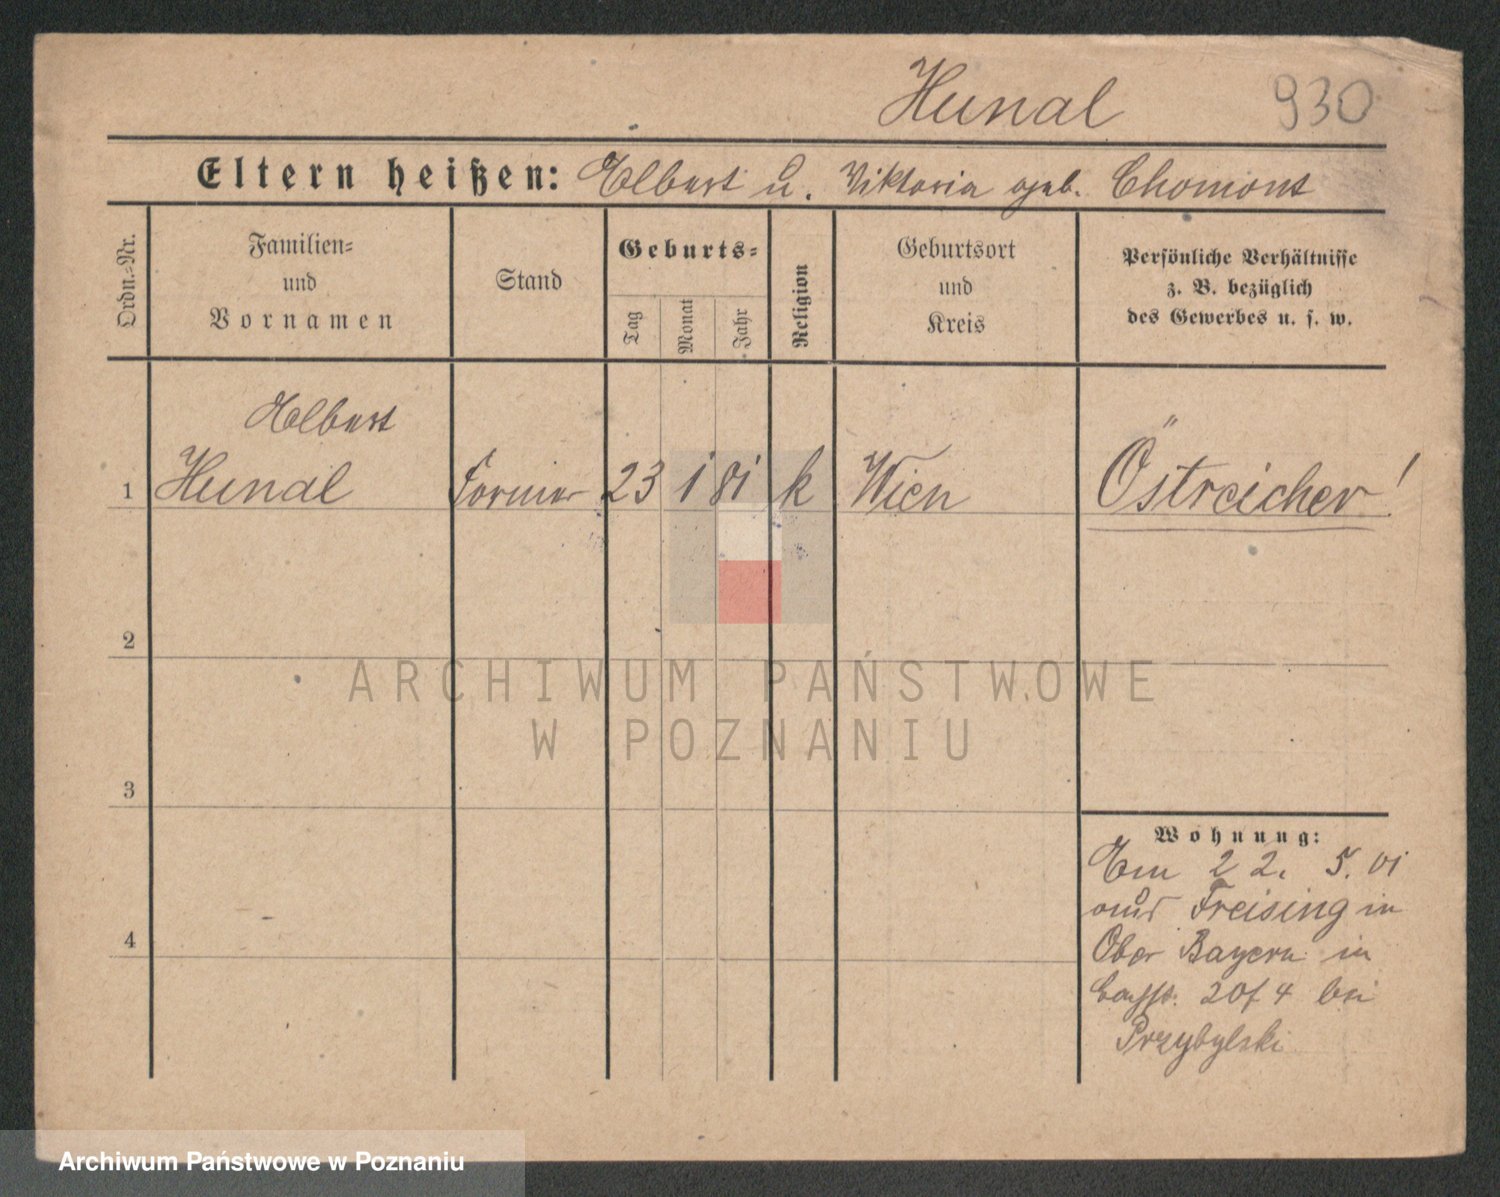 Hunal 930
Eltern heißen: Albert u. Viktoria geb. Chomont
Ordn.-Nr.
Familien-
und
Vornamen
Stand
Geburts-
Tag
Monat
Jahr
Religion
Geburtsort
und
Kreis
Persönliche Verhältnisse
z. B. bezüglich
des Gewerbes u. s. w.
Albert
1 Hunal Former 23 1 81 k Wien Östreicher!
2
3
4
Wohnung:
Am 22. 5. 01
aus Freising in
Ober Bayern in
20f 4 bei
Przybylski
ARCHIWUM PAŃSTWOWE
W POZNANIU
Archiwum Państwowe w Poznaniu